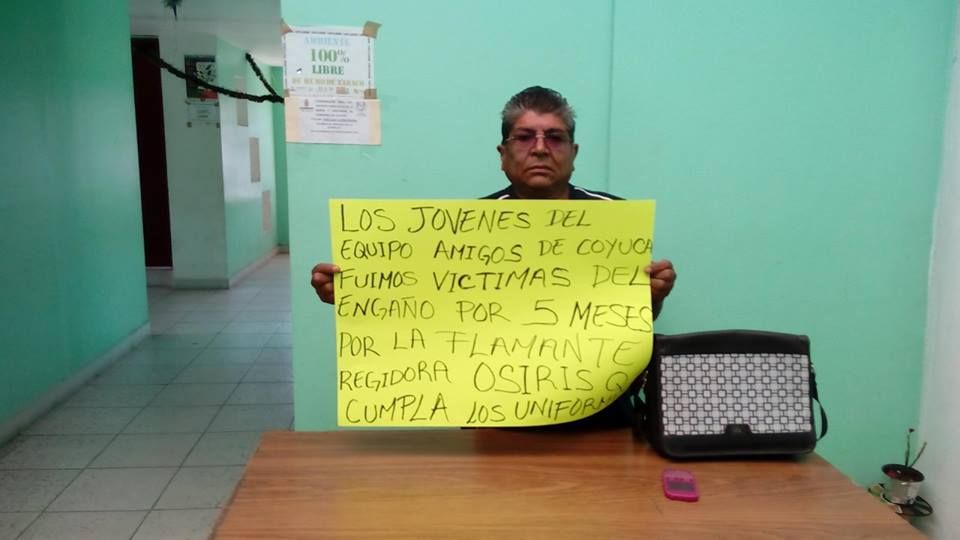 AMBIENTE
100%
LIBRE
DE HUMO DE TABACO
LOS JOVENES DEL
EQUIPO AMIGOS DE COYUCA
FUIMOS VICTIMAS DEL
ENGAÑO POR 5 MESES
POR LA FLAMANTE
REGIDORA OSIRIS Q
CUMPLA LOS UNIFORM